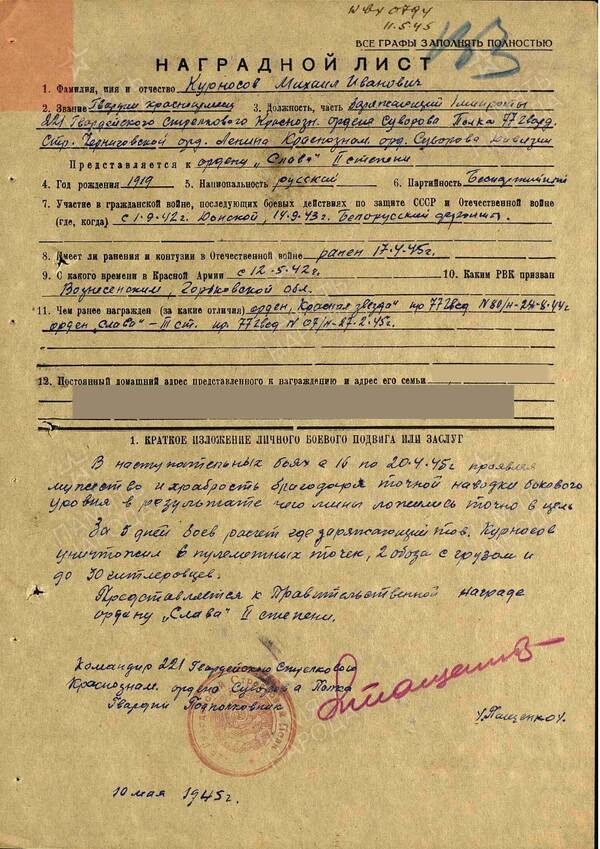 11.5.45
ВСЕ ГРАФЫ ЗАПОЛНЯТЬ ПОЛНОСТЬЮ
НАГРАДНОЙ ЛИСТ
1. Фамилия, имя и отчество Курносов Михаил Иванович
2. Звание Гвардии красноармеец 3. Должность, часть Заряжающий 1 минроты
221 Гвардейского стрелкового Краснозн. ордена Суворова Полка 77 гвард.
Стр. Черниговской орд. Ленина Краснознам. орд. Суворова Дивизии
Представляется к ордену „Слава" II степени
4. Год рождения 1919 5. Национальность русский 6. Партийность Беспартийный
7. Участие в гражданской войне, последующих боевых действиях по защите СССР и Отечественной войне
(где, когда) с 1.9.42г. Донской, 14.9.43г. Белорусский
8. Имеет ли ранения и контузии в Отечественной войне ранен 17.4.45г.
9. С какого времени в Красной Армии с 12.5.42г. 10. Каким РВК призван
Вознесенским, Горьковской обл.
11. Чем ранее награжден (за какие отличия) орден „Красная звезда" пр 77 гвсд N 80/н-24-8-44г
орден „Слава" – III ст. пр. 77 гвсд N 07/н-27.2.45г.
12. Постоянный домашний адрес представленного к награждению и адрес его семьи
1. КРАТКОЕ ИЗЛОЖЕНИЕ ЛИЧНОГО БОЕВОГО ПОДВИГА ИЛИ ЗАСЛУГ
В наступательных боях с 16 по 20.4.45г проявлял
мужество и храбрость благодаря точной наводки бокового
уровня в результате чего мины ложились точно в цель
За 5 дней боев расчет где заряжающий тов. Курносов
уничтожил 6 пулеметных точек, 2 обоза с грузом и
до 30 гитлеровцев.
Представляется к Правительственной награде
ордену „Слава" II степени.
Командир 221 Гвардейского Стрелкового
Краснознам. ордена Суворова Полка
Гвардии Подполковник
/Пащенко/.
10 мая 1945г.